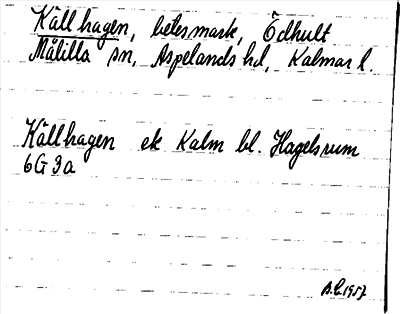 Källhagen, betesmark, Ödhult
Målilla sn, Aspelands hd, Kalmar l.
Källhagen ek Kalm bl. Hagelsrum
6G 3a
1957